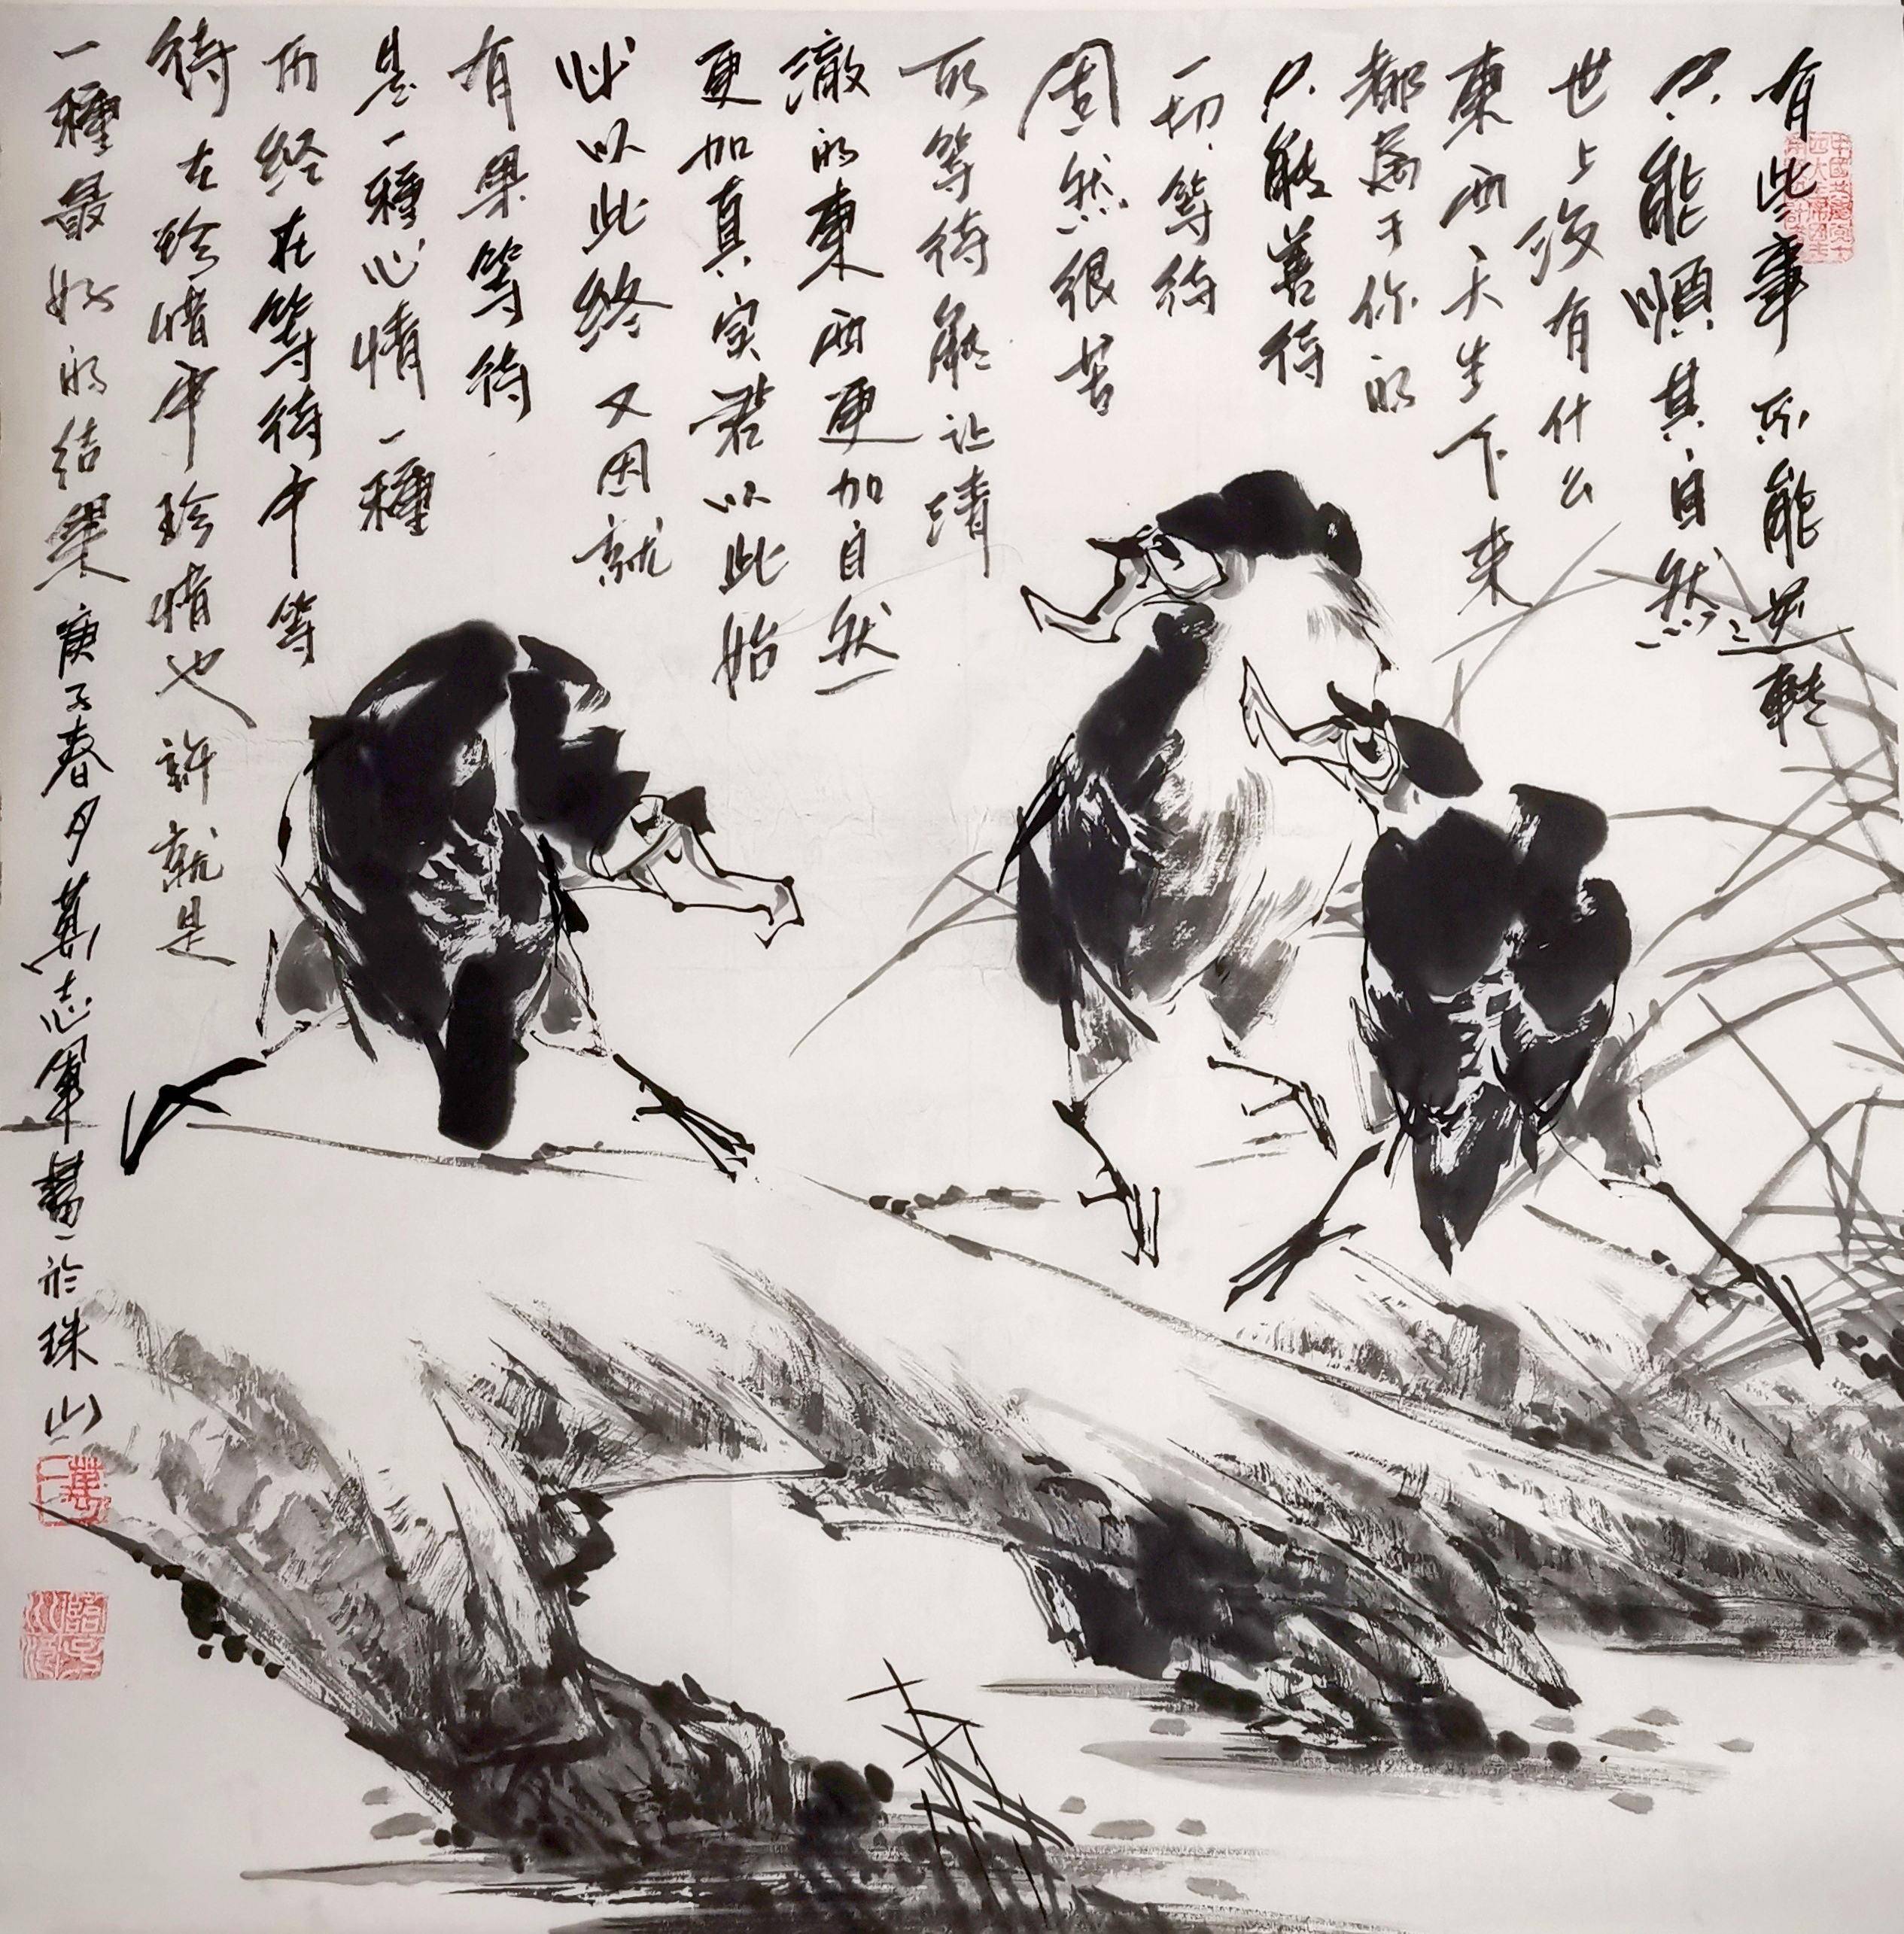 有些事不能逆转
只能順其自然
世上没有什么
東西天生下来
都属于你的
只能善待
一切等待
固然很苦
而等待能让清
澈的東西更加自然
更加真实若以此始
必以此终又因就
有果等待
是一種心情一種
而经在等待中等
待在珍惜中珍惜也許就是
一種最好的结果庚子春月萬志軍畫於珠山